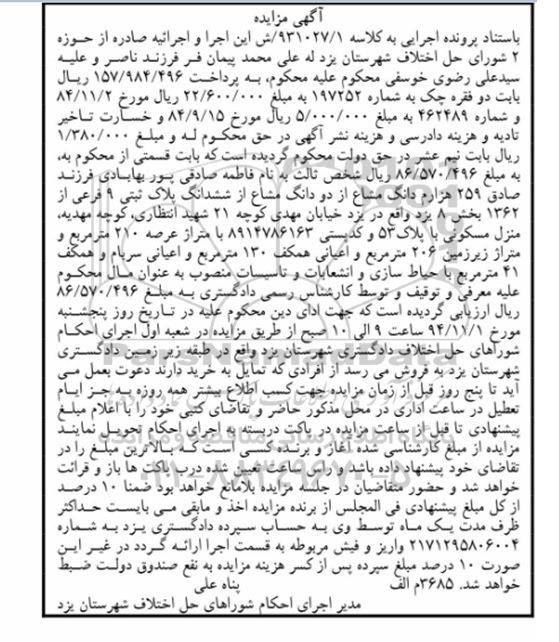 آگهی مزایده
باستناد پرونده اجرایی به کلاسه ۹۳۱۰۲۷/۱/ش این اجرا و اجرائیه صادره از حوزه
۲ شورای حل اختلاف شهرستان یزد له علی محمد پیمان فر فرزند ناصر و علیه
سیدعلی رضوی خوسفی محکوم علیه محکوم، به پرداخت ۱۵۷/۹۸۴/۴۹۶ ریال
بابت دو فقره چک به شماره ۱۹۷۲۵۲ به مبلغ ۲۲/۶۰۰/۰۰۰ ریال مورخ ۸۴/۱۱/۲
و شماره ۴۶۲۴۸۹ به مبلغ ۵/۰۰۰/۰۰۰ ریال مورخ ۸۴/۹/۱۵ و خسارت تاخیر
تادیه و هزینه دادرسی و هزینه نشر آگهی در حق محکوم له و مبلغ ۱/۳۸۰/۰۰۰
ریال بابت نیم عشر در حق دولت محکوم گردیده است که بابت قسمتی از محکوم به،
به مبلغ ۸۶/۵۷۰/۴۹۶ ریال شخص ثالث به نام فاطمه صادقی پور بهابادی فرزند
صادق ۲۵۹ هزارم دانگ مشاع از دو دانگ مشاع از ششدانگ پلاک ثبتی ۹ فرعی از
۱۳۶۲ بخش ۸ یزد واقع در یزد خیابان مهدی کوچه ۲۱ شهید انتظاری، کوچه مهدیه،
منزل مسکونی با پلاک ۵۳ و کدپستی ۸۹۱۴۷۸۶۱۶۳ با متراژ عرصه ۲۱۰ مترمربع و
متراژ زیرزمین ۲۰۶ مترمربع و اعیانی همکف ۱۳۰ مترمربع و اعیانی سریام و همکف
۴۱ مترمربع با حیاط سازی و انشعابات و تاسیسات منصوب به عنوان مال محکوم
علیه معرفی و توقیف و توسط کارشناس رسمی دادگستری به مبلغ ۸۶/۵۷۰/۴۹۶
ریال ارزیابی گردیده است که جهت ادای دین محکوم علیه در تاریخ روز پنجشنبه
مورخ ۹۴/۱۱/۱ ساعت ۹ الی ۱۰ صبح از طریق مزایده در شعبه اول اجرای احکام
شوراهای حل اختلاف دادگستری شهرستان یزد واقع در طبقه زیرزمین دادگستری
شهرستان یزد به فروش می رسد از افرادی که تمایل به خرید دارند دعوت بعمل می
آید تا پنج روز قبل از زمان مزایده جهت کسب اطلاع بیشتر همه روزه به جز ایام
تعطیل در ساعت اداری در محل مذکور حاضر و تقاضای کتبی خود را با اعلام مبلغ
پیشنهادی تا قبل از ساعت مزایده در پاکت دربسته به اجرای احکام تحویل نمایند
مزایده از مبلغ کارشناسی شده آغاز و برنده کسی است که بالاترین مبلغ را در
تقاضای خود پیشنهاد داده باشد و راس ساعت تعیین شده درب پاکت ها باز و قرائت
خواهد شد و حضور متقاضیان در جلسه مزایده بلامانع خواهد بود ضمنا ۱۰ درصد
از کل مبلغ پیشنهادی فی المجلس از برنده مزایده اخذ و مابقی می بایست حداکثر
ظرف مدت یک ماه توسط وی به حساب سپرده دادگستری یزد به شماره
۲۱۷۱۲۹۵۸۰۶۰۰۴ واریز و فیش مربوطه به قسمت اجرا ارائه گردد در غیر این
صورت ۱۰ درصد مبلغ سپرده پس از کسر هزینه مزایده به نفع صندوق دولت ضبط
خواهد شد. ۳۶۸۵م الف پناه علی
مدیر اجرای احکام شوراهای حل اختلاف شهرستان یزد